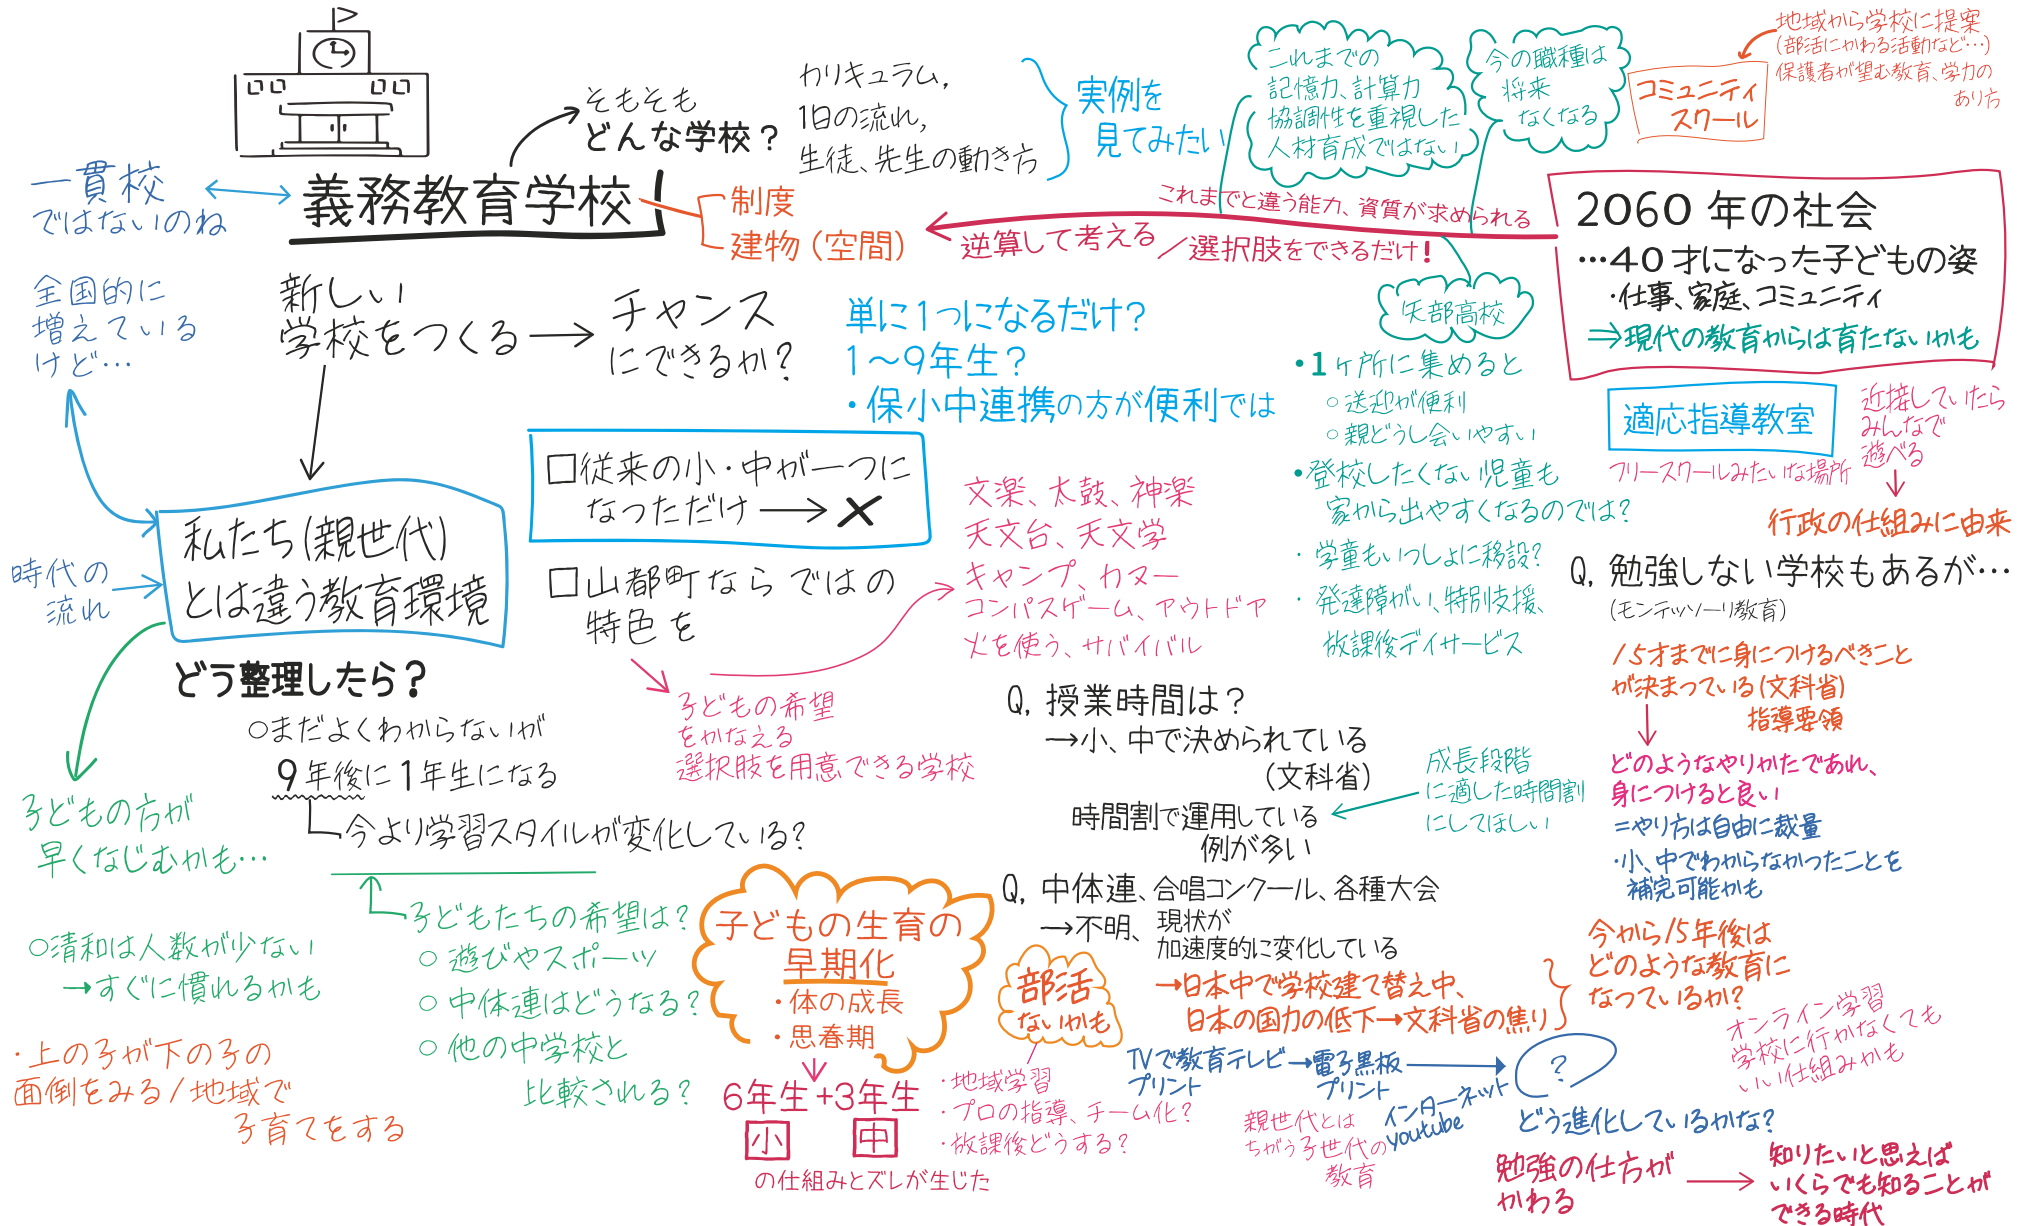 そもそも
どんな学校？
カリキュラム，
1日の流れ，
生徒、先生の動き方
実例を
見てみたい
これまでの
記憶力、計算力
協調性を重視した
人材育成ではない
今の職種は
将来
なくなる
コミュニティ
スクール
地域から学校に提案
(部活にかわる活動など…)
保護者が望む教育、学力の
あり方
一貫校
ではないのね
義務教育学校
制度
建物（空間）
これまでと違う能力、資質が求められる
逆算して考える
／選択肢をできるだけ！
2060年の社会
…40才になった子どもの姿
・仕事、家庭、コミュニティ
⇒現代の教育からは育たないかも
全国的に
増えている
けど…
新しい
学校をつくる
チャンス
にできるか？
単に1つになるだけ？
1〜9年生？
・保小中連携の方が便利では
矢部高校
・1ヶ所に集めると
○送迎が便利
○親どうし会いやすい
・登校したくない児童も
家から出やすくなるのでは？
・学童もいっしょに移設？
・発達障がい、特別支援、
放課後デイサービス
適応指導教室
フリースクールみたいな場所
近接していたら
みんなで
遊べる
行政の仕組みに由来
□従来の小・中が一つに
なっただけ→×
□山都町ならではの
特色を
文楽、太鼓、神楽
天文台、天文学
キャンプ、カヌー
コンパスゲーム、アウトドア
火を使う、サバイバル
子どもの希望
をかなえる
選択肢を用意できる学校
私たち(親世代)
とは違う教育環境
時代の
流れ
どう整理したら？
○まだよくわからないが
9年後に1年生になる
今より学習スタイルが変化している？
子どもの方が
早くなじむかも…
○清和は人数が少ない
→すぐに慣れるかも
・上の子が下の子の
面倒をみる/地域で
子育てをする
子どもたちの希望は？
○遊びやスポーツ
○中体連はどうなる？
○他の中学校と
比較される？
子どもの生育の
早期化
・体の成長
・思春期
6年生+3年生
小 中
の仕組みとズレが生じた
Q, 授業時間は？
→小、中で決められている
（文科省）
時間割で運用している
例が多い
成長段階
に適した時間割
にしてほしい
Q, 中体連、合唱コンクール、各種大会
→不明、現状が
加速度的に変化している
部活
ないかも
・地域学習
・プロの指導、チーム化？
・放課後どうする？
→日本中で学校建て替え中、
日本の国力の低下→文科省の焦り
Q, 勉強しない学校もあるが…
(モンテッソーリ教育)
15才までに身につけるべきこと
が決まっている(文科省)
指導要領
どのようなやりかたであれ、
身につけると良い
=やり方は自由に裁量
・小、中でわからなかったことを
補完可能かも
今から15年後は
どのような教育に
なっているか？
オンライン学習
学校に行かなくても
いい仕組みかも
TVで教育テレビ→電子黒板
プリント
プリント
インターネット
youtube
？
どう進化しているかな？
親世代とは
ちがう子世代の
教育
勉強の仕方が
かわる
知りたいと思えば
いくらでも知ることが
できる時代